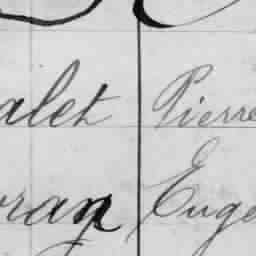 alet Pierre
ran Euge